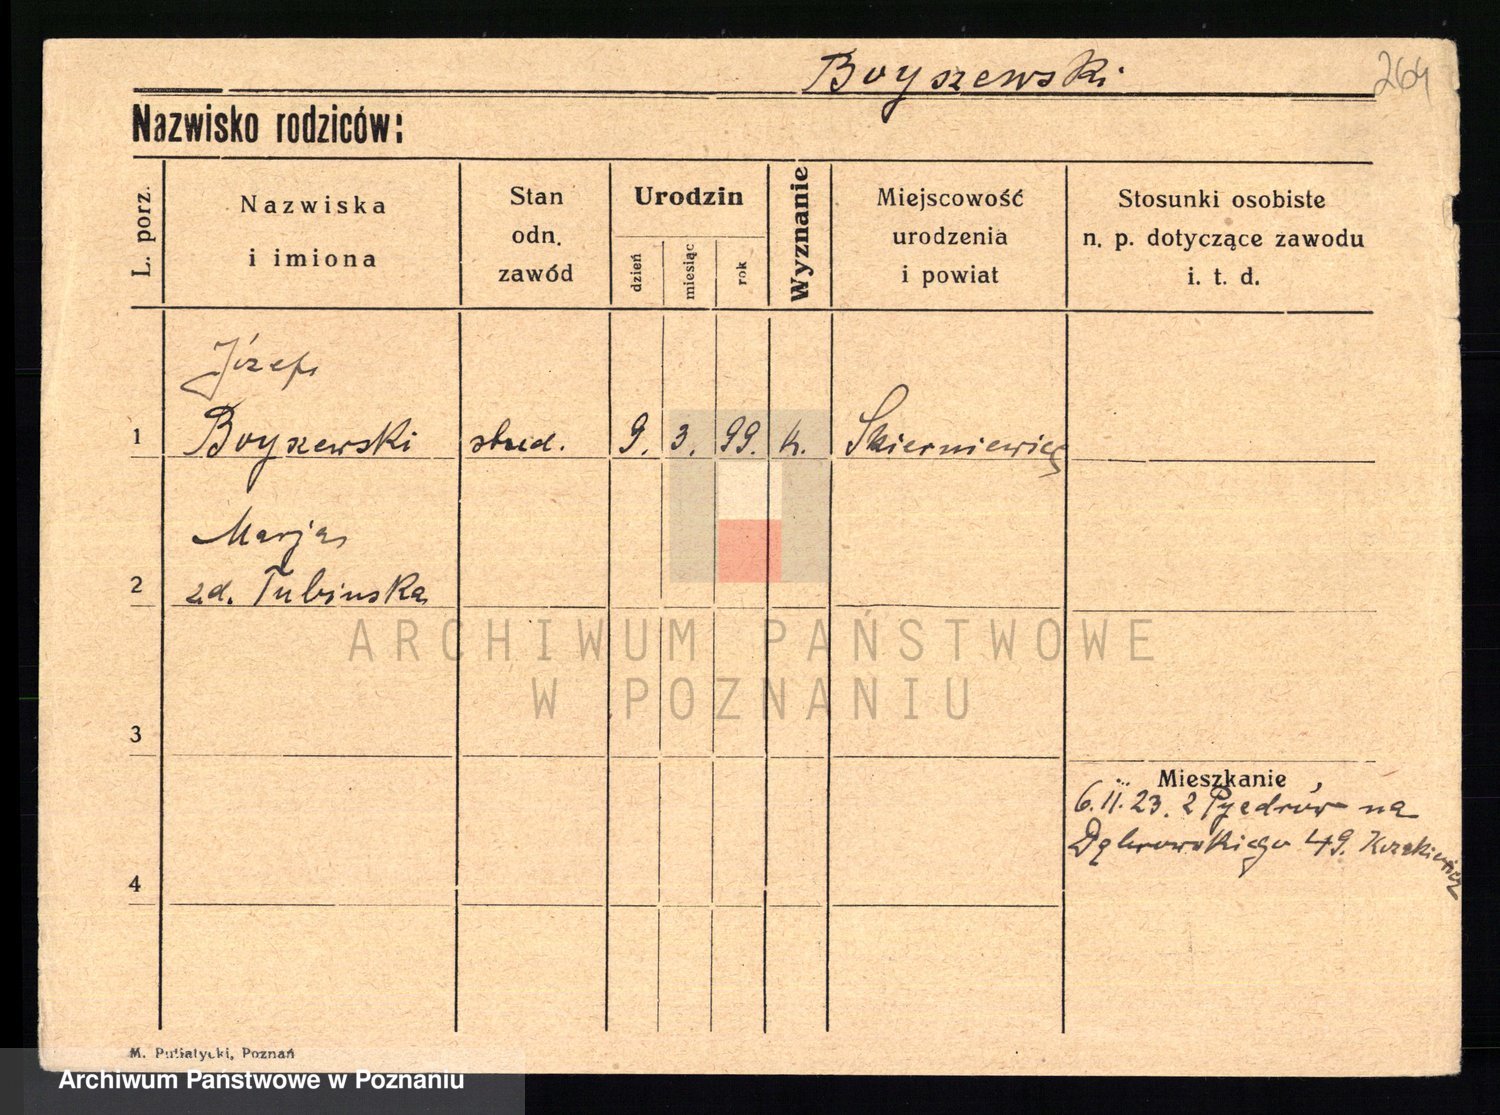 Boyszewski
264
Nazwisko rodziców:
L. porz.
Nazwiska
i imiona
Stan
odn.
zawód
Urodzin
dzień
miesiąc
rok
Wyznanie
Miejscowość
urodzenia
i powiat
Stosunki osobiste
n. p. dotyczące zawodu
i. t. d.
Józef
1 Boyszewski stud. 9. 3. 99. k. Skierniewice
Marja
2 zd. Tubinska
ARCHIWUM PAŃSTWOWE
W POZNANIU
3
Mieszkanie
6.II.23. z Pyzdrów na
Dąbrowskiego 49.
4
M. Putiatycki, Poznań
Archiwum Państwowe w Poznaniu